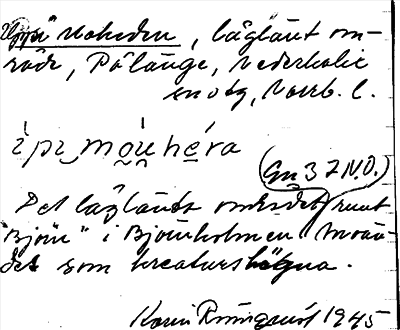 "Uppi Moheden", låglänt om-
råde, Pålänge, Nederkalix
sn o tg, Norrb. l.
ìpi moùhéra
(Gn 3 7 N.O.)
Det låglänta området runt
"Björn" i Björnholmen använ-
det som kreaturshägna.
Karin Rönnqvist 1945